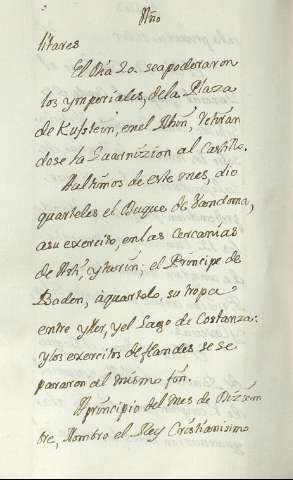 Año
litares
El Dia 20. seapoderaron
los ymperiales, dela Plaza
de Kufstein, enel Rhin, retiran
dose la Guarnizion al Castillo.
Aultimos de este mes, dio
quarteles el Duque de Vandoma,
asu exercito, enlas cercanias
de Asti, yturin; el Principe de
Baden, aquartelo, su tropa
entre yler, yel Lago de Costanza.
ylos exercitos de flandes se se
pararon al mismo fin.
Aprincipio del mes de Diziem
bre, Nombro el Rey Cristianisimo